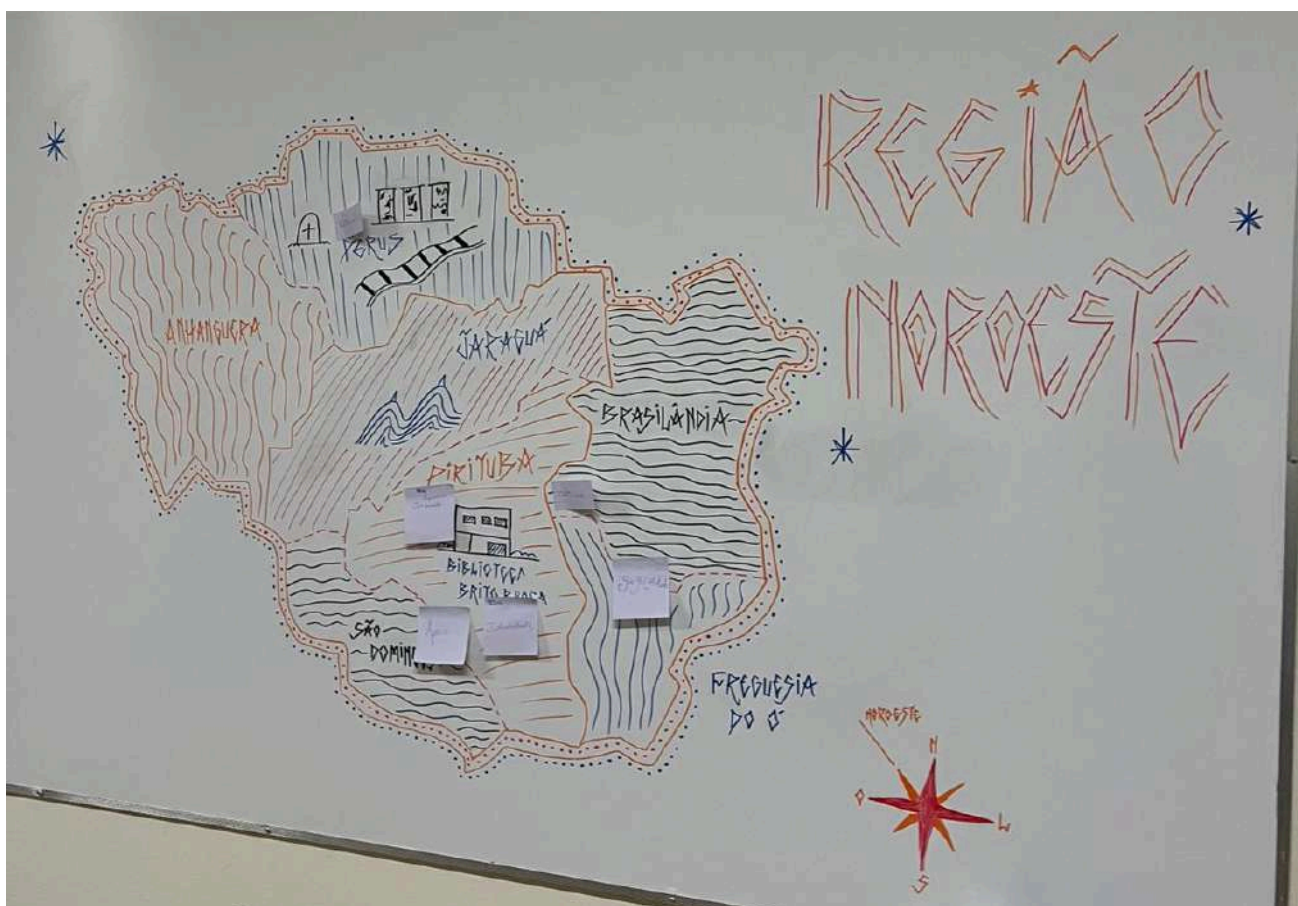 REGIÃO
NOROESTE
PERUS
ANHANGUERA
JARAGUÁ
BRASILÂNDIA
PIRITUBA
BIBLIOTECA
BRITO
SÃO
FREGUESIA
DO Ó
NOROESTE
N
O
L
S